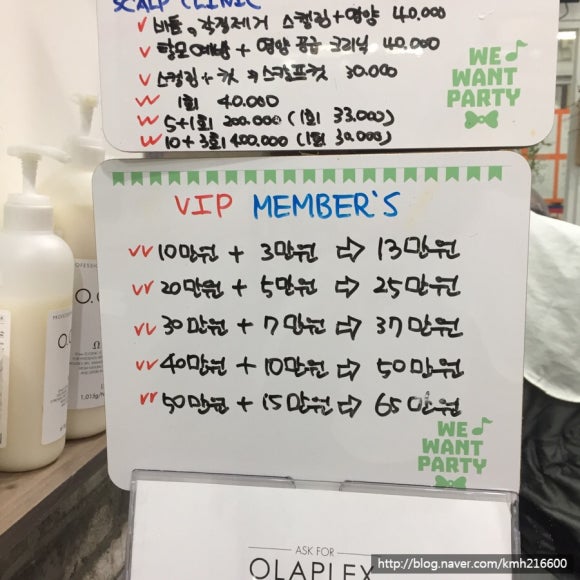 SCALP CLINIC
✓ 비듬, 각질제거 스켈링+영양 40.000
✓ 탈모예방 + 영양 공급 크리닉 40.000
✓ 스켈링 + 컷 → 스칼프컷 30.000
✓✓ 1회 40.000
✓✓ 5+1회 200.000 (1회 33.000)
✓✓ 10+3회 400.000 (1회 30.000)
WE
WANT
PARTY
VIP MEMBER'S
✓✓ 10만원 + 3만원 ⇨ 13만원
✓✓ 20만원 + 5만원 ⇨ 25만원
✓✓ 30만원 + 7만원 ⇨ 37만원
✓✓ 40만원 + 10만원 ⇨ 50만원
✓✓ 50만원 + 15만원 ⇨ 65만원
WE
WANT
PARTY
ASK FOR
OLAPLEX
http://blog.naver.com/kmh216600